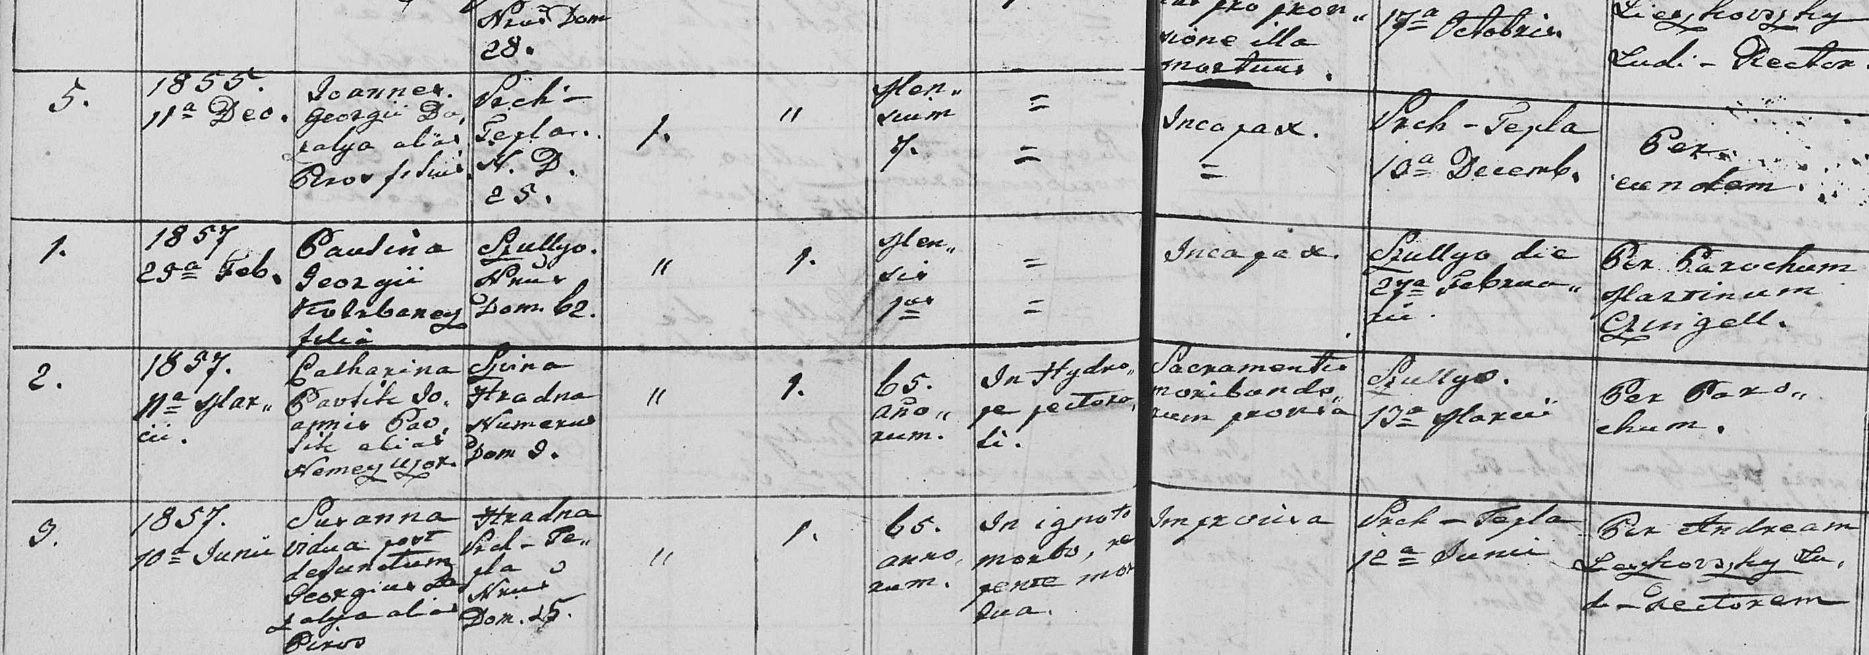 Nrus Dom
28.
sione illa
mortuus.
17a Octobris.
Ludi-Rector.
5.
1855.
11a Dec.
Joannes.
Georgii Da,
Piros filius.
Vrch-
Tepla.
N. D.
25.
1.
"
Men,,
sium
7.
=
=
Incapax.
=
Vrch-Tepla
13a Decemb.
Per
eundem.
1.
1857
25a Feb.
Paulina
Georgii
filia
Szullyo.
Nrus
Dom. 62.
"
1.
Men,,
sis
1us
=
=
Incapax.
Szullyo die
27a Februa,,
rii.
Per Parochum
Martinum
2.
1857.
11a Mar,,
tii.
Catharina
Pavlik Jo,
annis Pav,
lik alias
Nemecz uxor.
Hradna
Numerus
Dom 9.
"
1.
65.
año,,
rum.
In Hydro,,
pe pectora,
li.
Sacramentis
moribundo,
rum provisa
Szullyo.
13a Martii
Per Paro,,
chum.
3.
1857.
10a Junii
Susanna
vidua post
defunctum
Georgius Da
alias
Piros
Hradna
Vrch-Te,,
pla
Nrus
Dom. 25.
"
1.
65.
anno,
rum.
In ignoto
morbo, re
pente mor
tua.
Improvisa
Vrch-Tepla
12a Junii
Per Andream
Leszkovszky Lu,
di-Rectorem